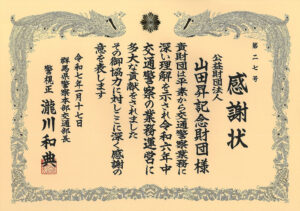 第二七号
感謝状
公益財団法人
山田昇記念財団様
貴財団は平素から交通警察業務に
深い理解を示され令和六年中
交通警察の業務運営に
多大な貢献をされました
その御協力に対しここに深く感謝の
意を表します
令和七年一月十七日
群馬県警察本部交通部長
警視正 瀧川和典